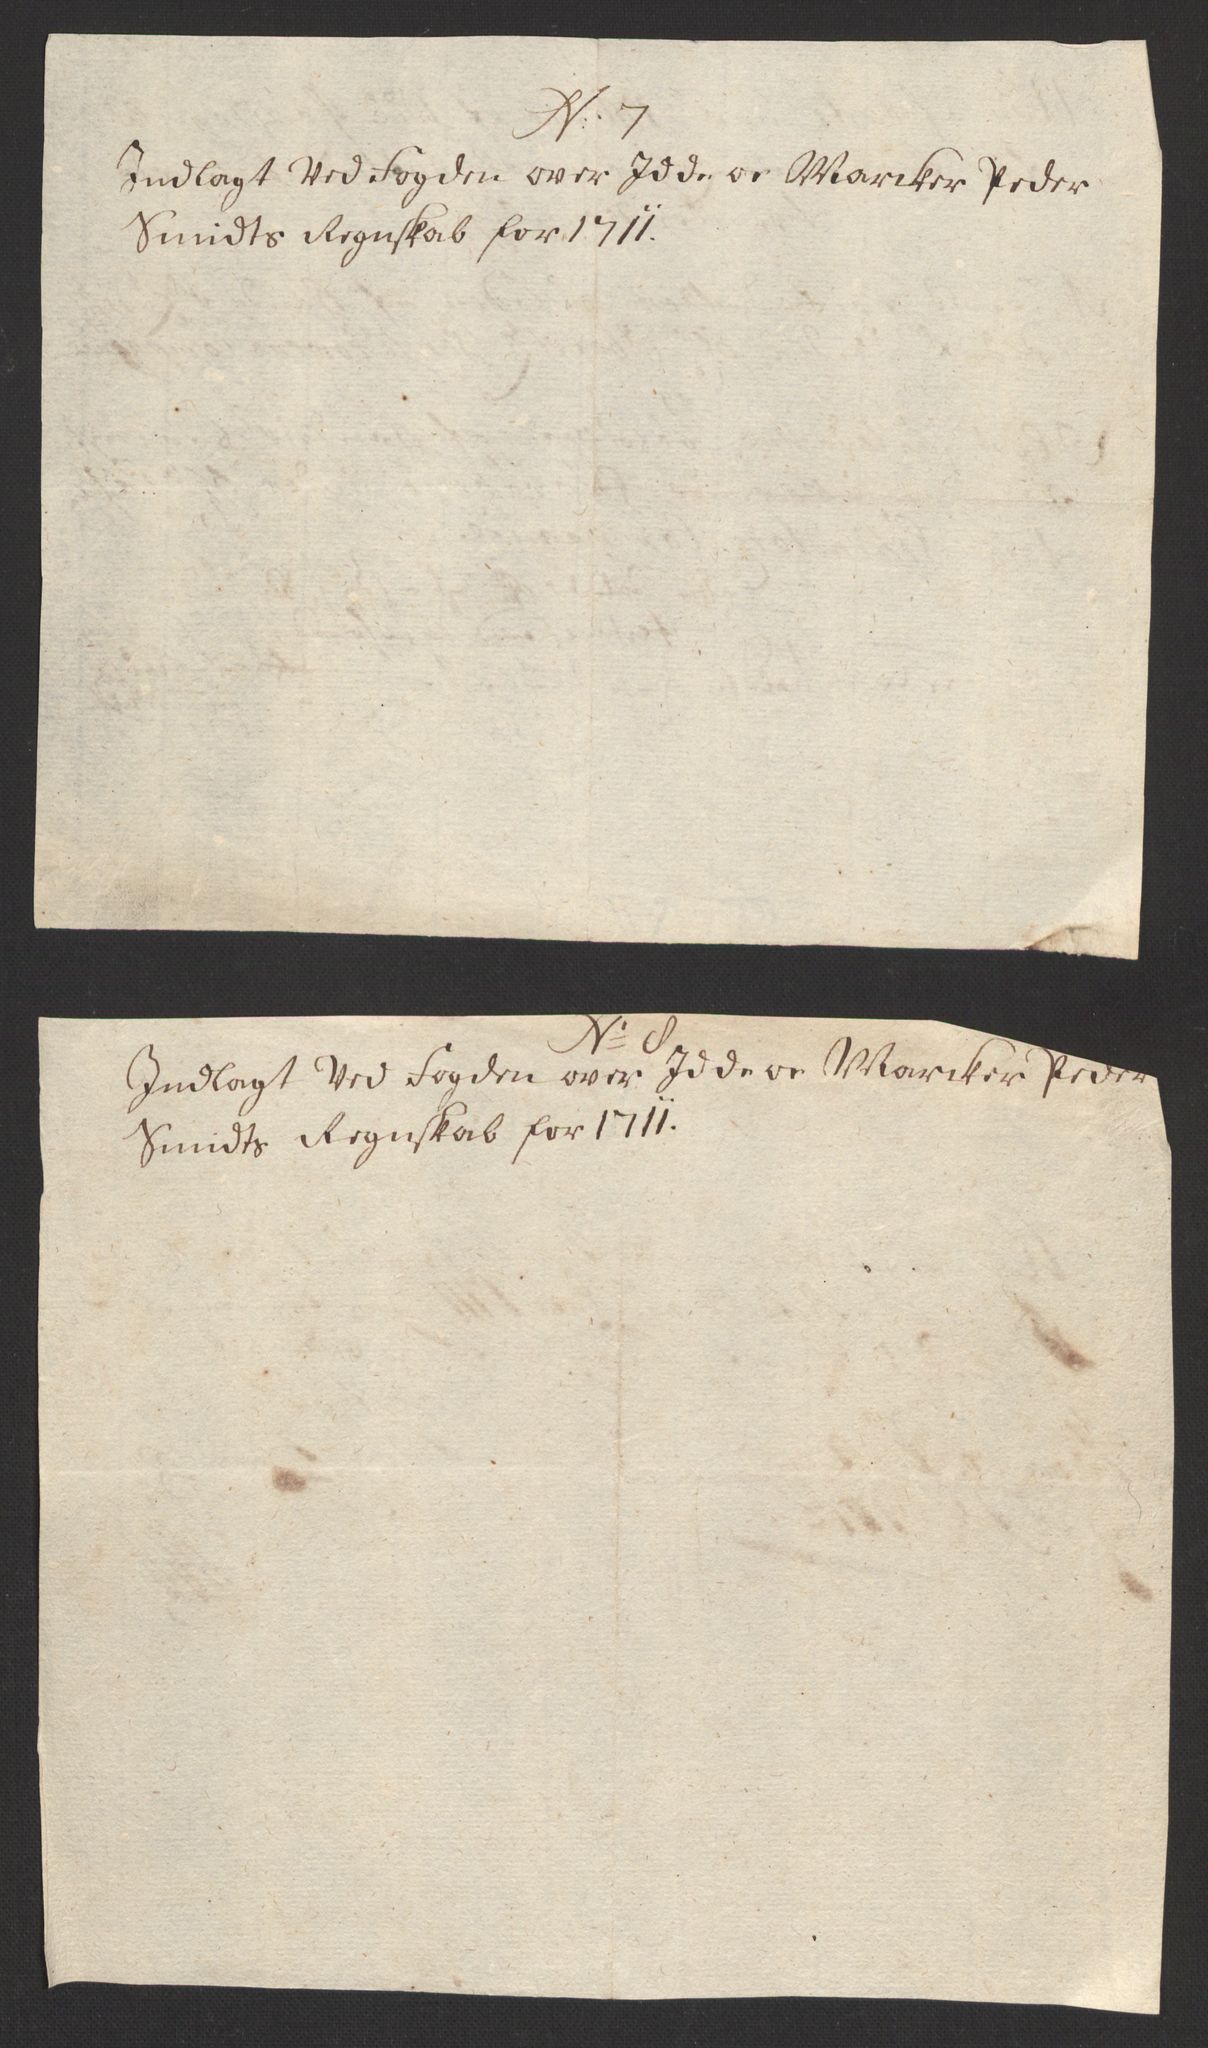 N: 7
Indlagt Ved Fogden over Idde oc Marcker Peder
Smidts Regnskab for 1711.
N: 8
Indlagt Ved Fogden over Idde oc Marcker Peder
Smidts Regnskab for 1711.